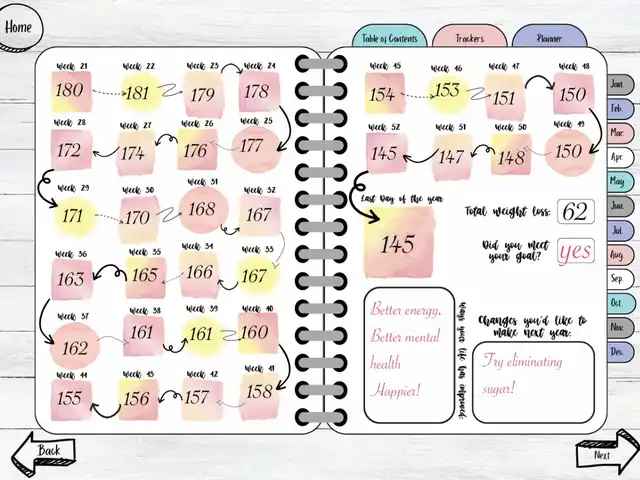 Home
Table of Contents
Trackers
Planner
Week 21
Week 22
Week 23
Week 24
180
181
179
178
Week 28
Week 27
Week 26
Week 25
172
174
176
177
Week 29
Week 30
Week 31
Week 32
171
170
168
167
Week 36
Week 35
Week 34
Week 33
163
165
166
167
Week 37
Week 38
Week 39
Week 40
162
161
161
160
Week 44
Week 43
Week 42
Week 41
155
156
157
158
Week 45
Week 46
Week 47
Week 48
154
153
151
150
Week 52
Week 51
Week 50
Week 49
145
147
148
150
Last Day of the year
145
Total weight loss: 62
Did you meet
your goal? yes
Better energy.
Better mental
health
Happier!
Ways your life has improved:
Changes you'd like to
make next year.
Try eliminating
sugar!
Jan.
Feb.
Mar.
Apr.
May
Jun.
Jul.
Aug.
Sep.
Oct.
Nov.
Dec.
Back
Next